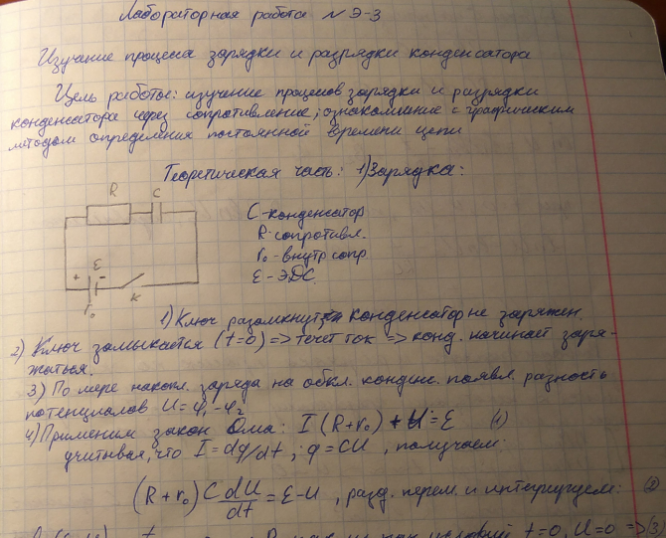 Лабораторная работа №Э-3
Изучение процесса зарядки и разрядки конденсатора
Цель работы: изучение процесов зарядки и разрядки
конденсатора через сопротивление; ознакомление с графическим
методом определения постоянной времени цепи
Теоретическая часть: 1) Зарядка:
R C
C-конденсатор
R-сопротивл.
r₀-внутр сопр
ε-ЭДС.
+ ε -
r₀ К
1) Ключ разомкнут => конденсатор не заряжен.
2) Ключ замыкается (t=0) => течет ток => конд. начинает заря-
жаться.
3) По мере накопл. заряда на обкл. конденс. появл. разность
потенциалов U=φ₁-φ₂
4) Применим закон Ома: I(R+r₀)+U=ε (1)
учитывая, что I=dq/dt, ; q=CU, получаем:
(R+r₀)C dU/dt=ε-U, разд. перем. и интегрируем: (2)
t=0, U=0 => (3)